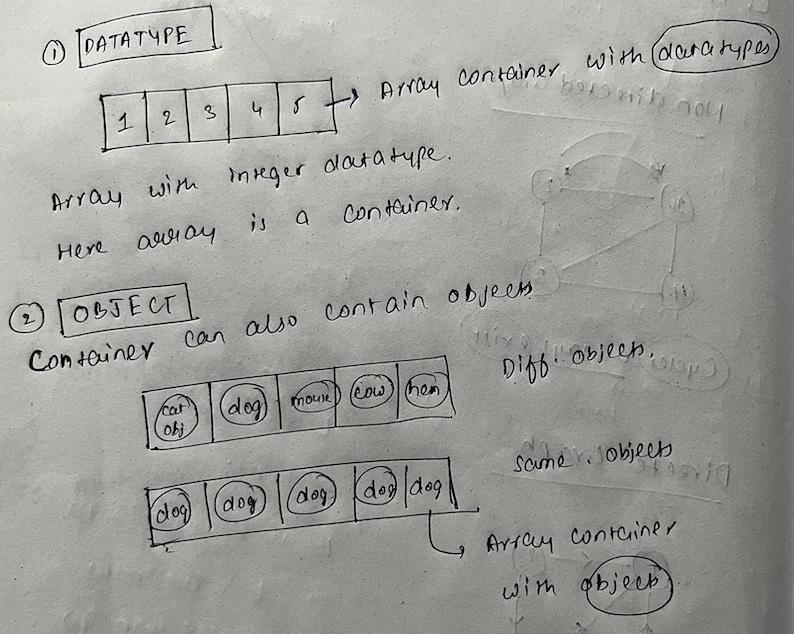 ① DATATYPE
1 2 3 4 5 → Array container with datatypes
Array with integer datatype.
Here array is a container.
② OBJECT
Container can also contain objects
cat obj dog mouse cow hen Diff. objects.
dog dog dog dog dog same. objects
Array container
with objects